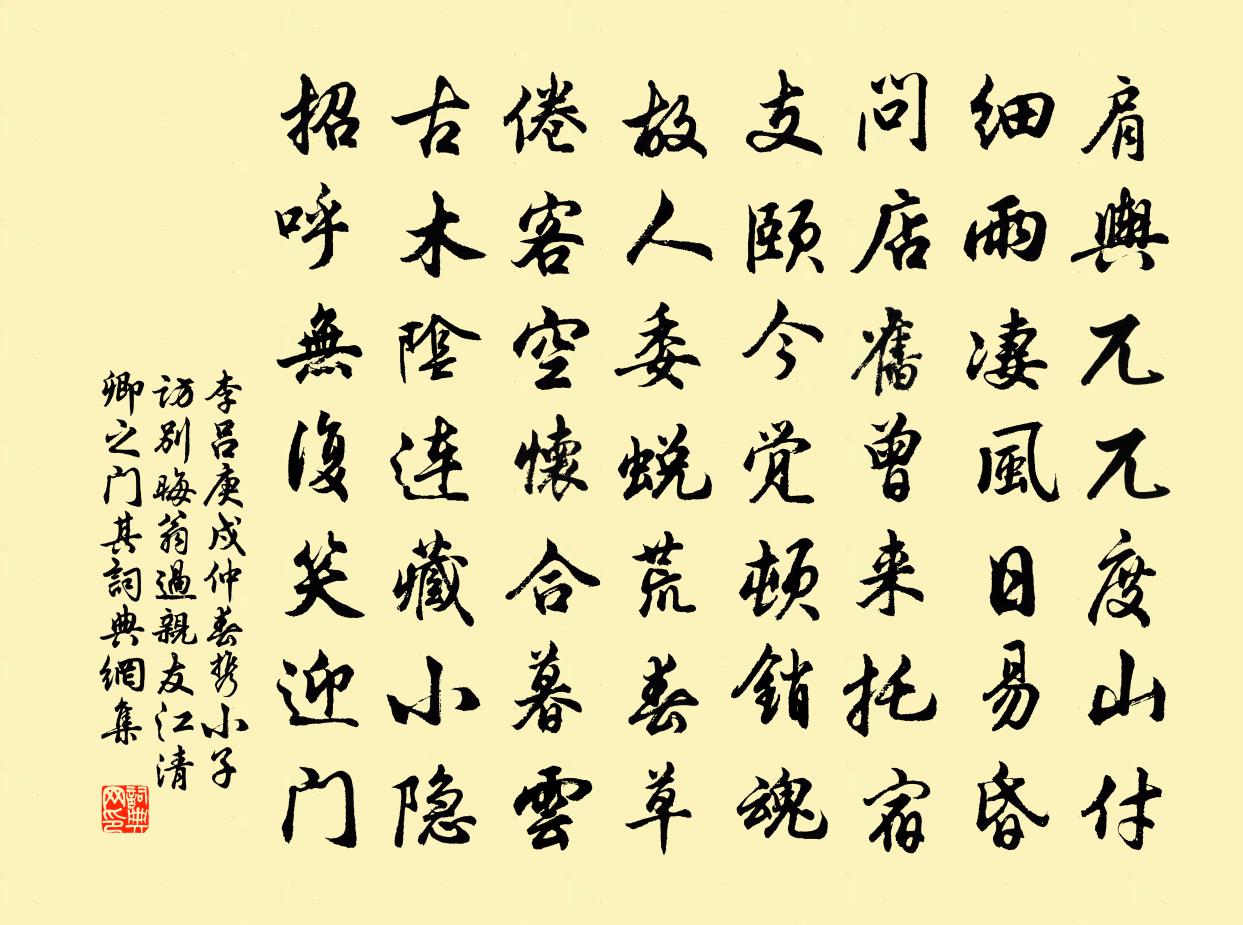 肩輿兀兀度山村
細雨凄風日易昏
問店舊曾来托宿
支颐今觉頓銷魂
故人委蜕荒春草
倦客空懷合暮雲
古木陰連藏小隐
招呼無復笑迎门
李吕庚戌仲春携小子
訪别晦翁過親友江清
卿之门其詞典網集
詞典网印